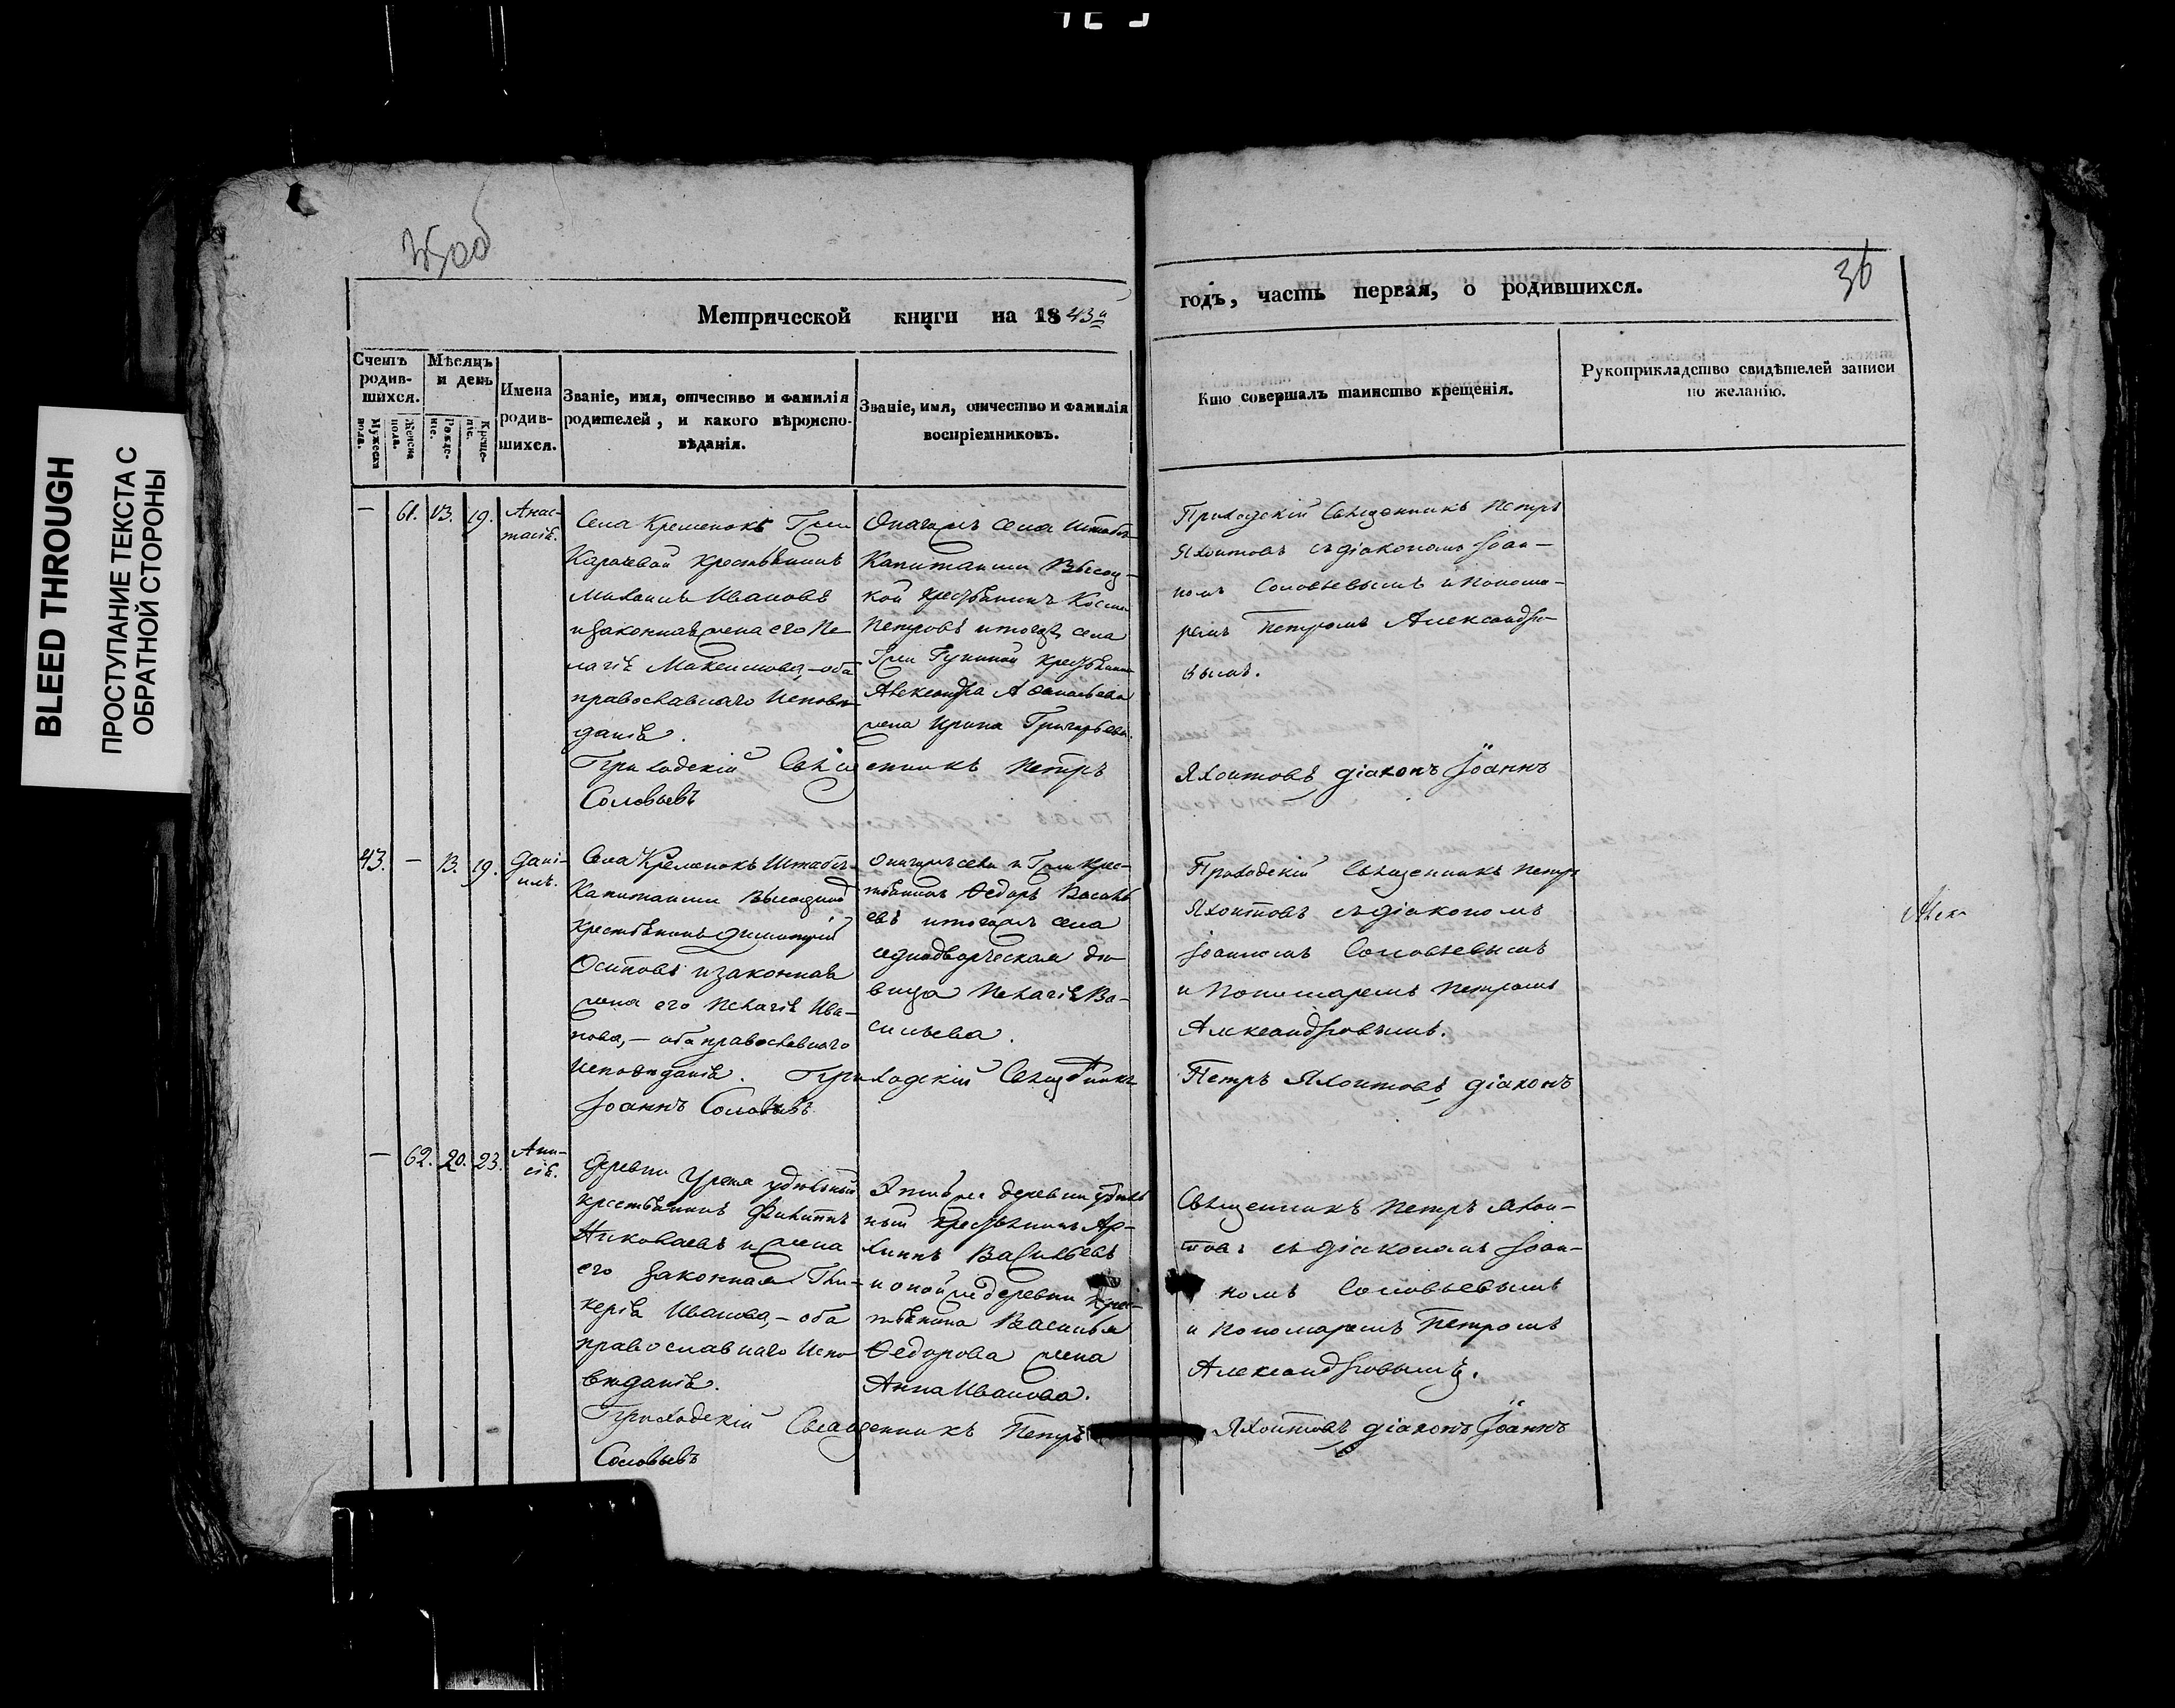 BLEED THROUGH
ПРОСТУПАНИЕ ТЕКСТА С
ОБРАТНОЙ СТОРОНЫ
36
Метрической книги на 1843
годъ, часть первая, о родившихся.
Счетъ родив-шихся.
Мужеска пола.
Женска пола.
Мѣсяцъ и день
Рожде-ніе.
Креще-ніе.
Имена родив-шихся.
Званіе, имя, отчество и фамилія
родителей, и какого вѣроиспо-
вѣданія.
Званіе, имя, отчество и фамилія
воспріемниковъ.
Кто совершалъ таинство крещенія.
Рукоприкладство свидѣтелей записи
по желанію.
— 61. 13. 19. Анас-
тасія.
Села Кременокъ Гжи
Карачевой крестьянинъ
Михаилъ Ивановъ
и законная жена его Пе-
лагія Максимова, — оба
православнаго исповѣ-
данія.
Онагожъ села Штабсъ
Капитанши Высоц-
кой крестьянинъ Косма
Петровъ и тогожъ села
Гжи крестьянина
Александра Афанасьева
жена Ирина Григорьева.
Приходскій Священникъ Петръ
Яхонтовъ съ діакономъ Іоан-
номъ Соловьевымъ и Понома-
ремъ Петромъ Александро-
вымъ.
Приходскій Священникъ Петръ Яхонтовъ, діаконъ Іоаннъ
Соловьевъ
43. — 13. 19. Дані-
илъ.
Села Кременокъ Штабсъ
Капитанши Высоцкой
крестьянинъ Димитрій
Осиповъ и законная
жена его Пелагія Ива-
нова, — оба православнаго
исповѣданія.
Онагожъ села и Гжи крес-
тьянинъ Ѳедоръ Василь
евъ и тогожъ села
однодворческая дѣ-
вица Пелагія Ва-
сильева.
Приходскій Священникъ Петръ
Яхонтовъ съ діакономъ
Іоанномъ Соловьевымъ
и Пономаремъ Петромъ
Александровымъ.
Приходскій Священникъ Петръ Яхонтовъ, діаконъ
Іоаннъ Соловьевъ
— 62. 20. 23. Ани-
сія.
Деревни Урена удѣльный
крестьянинъ Филиппъ
Николаевъ и жена
его законная Гли-
керія Иванова, — оба
православнаго испо-
вѣданія.
Этой же деревни удѣль
ный крестьянинъ
Васильевъ
и оной же деревни крес-
тьянина Василья
Ѳедорова жена
Анна Иванова.
Священникъ Петръ Яхон-
товъ съ діакономъ Іоан-
номъ Соловьевымъ
и Пономаремъ Петромъ
Александровымъ.
Приходскій Священникъ Петръ Яхонтовъ, діаконъ Іоаннъ
Соловьевъ